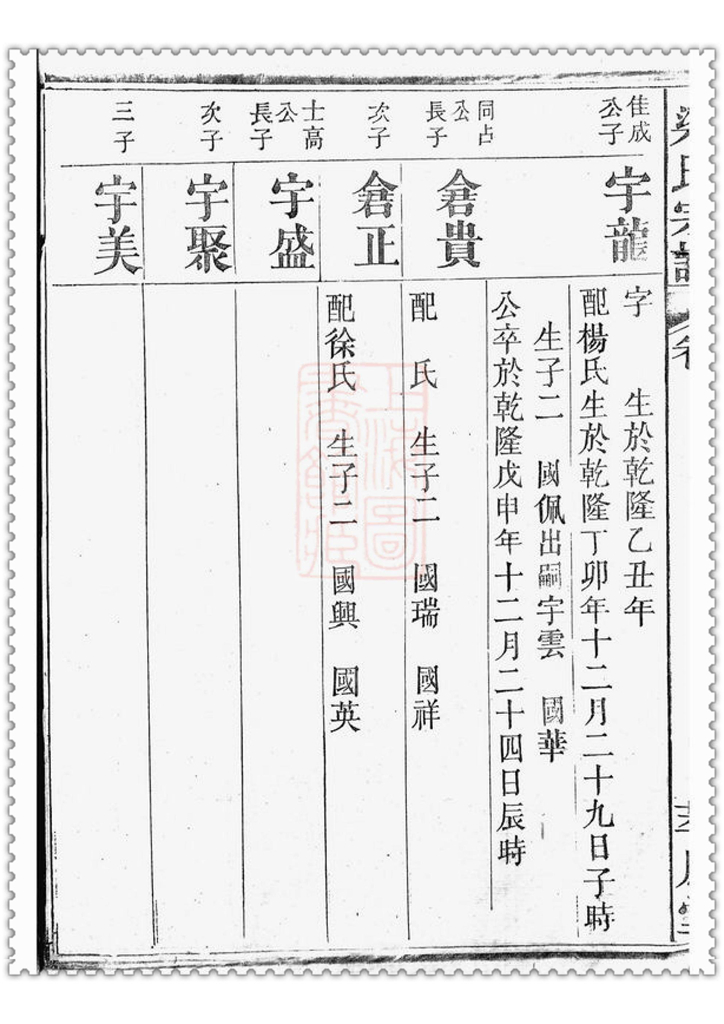 梁氏宗譜 卷
佳成公子
宇龍
字 生於乾隆乙丑年
配楊氏生於乾隆丁卯年十二月二十九日子時
生子二 國佩出嗣宇雲 國華
公卒於乾隆戊申年十二月二十四日辰時
同占公長子
倉貴
配 氏 生子二 國瑞 國祥
次子
倉正
配徐氏 生子二 國興 國英
士高公長子
宇盛
次子
宇聚
三子
宇美
上海圖書館藏